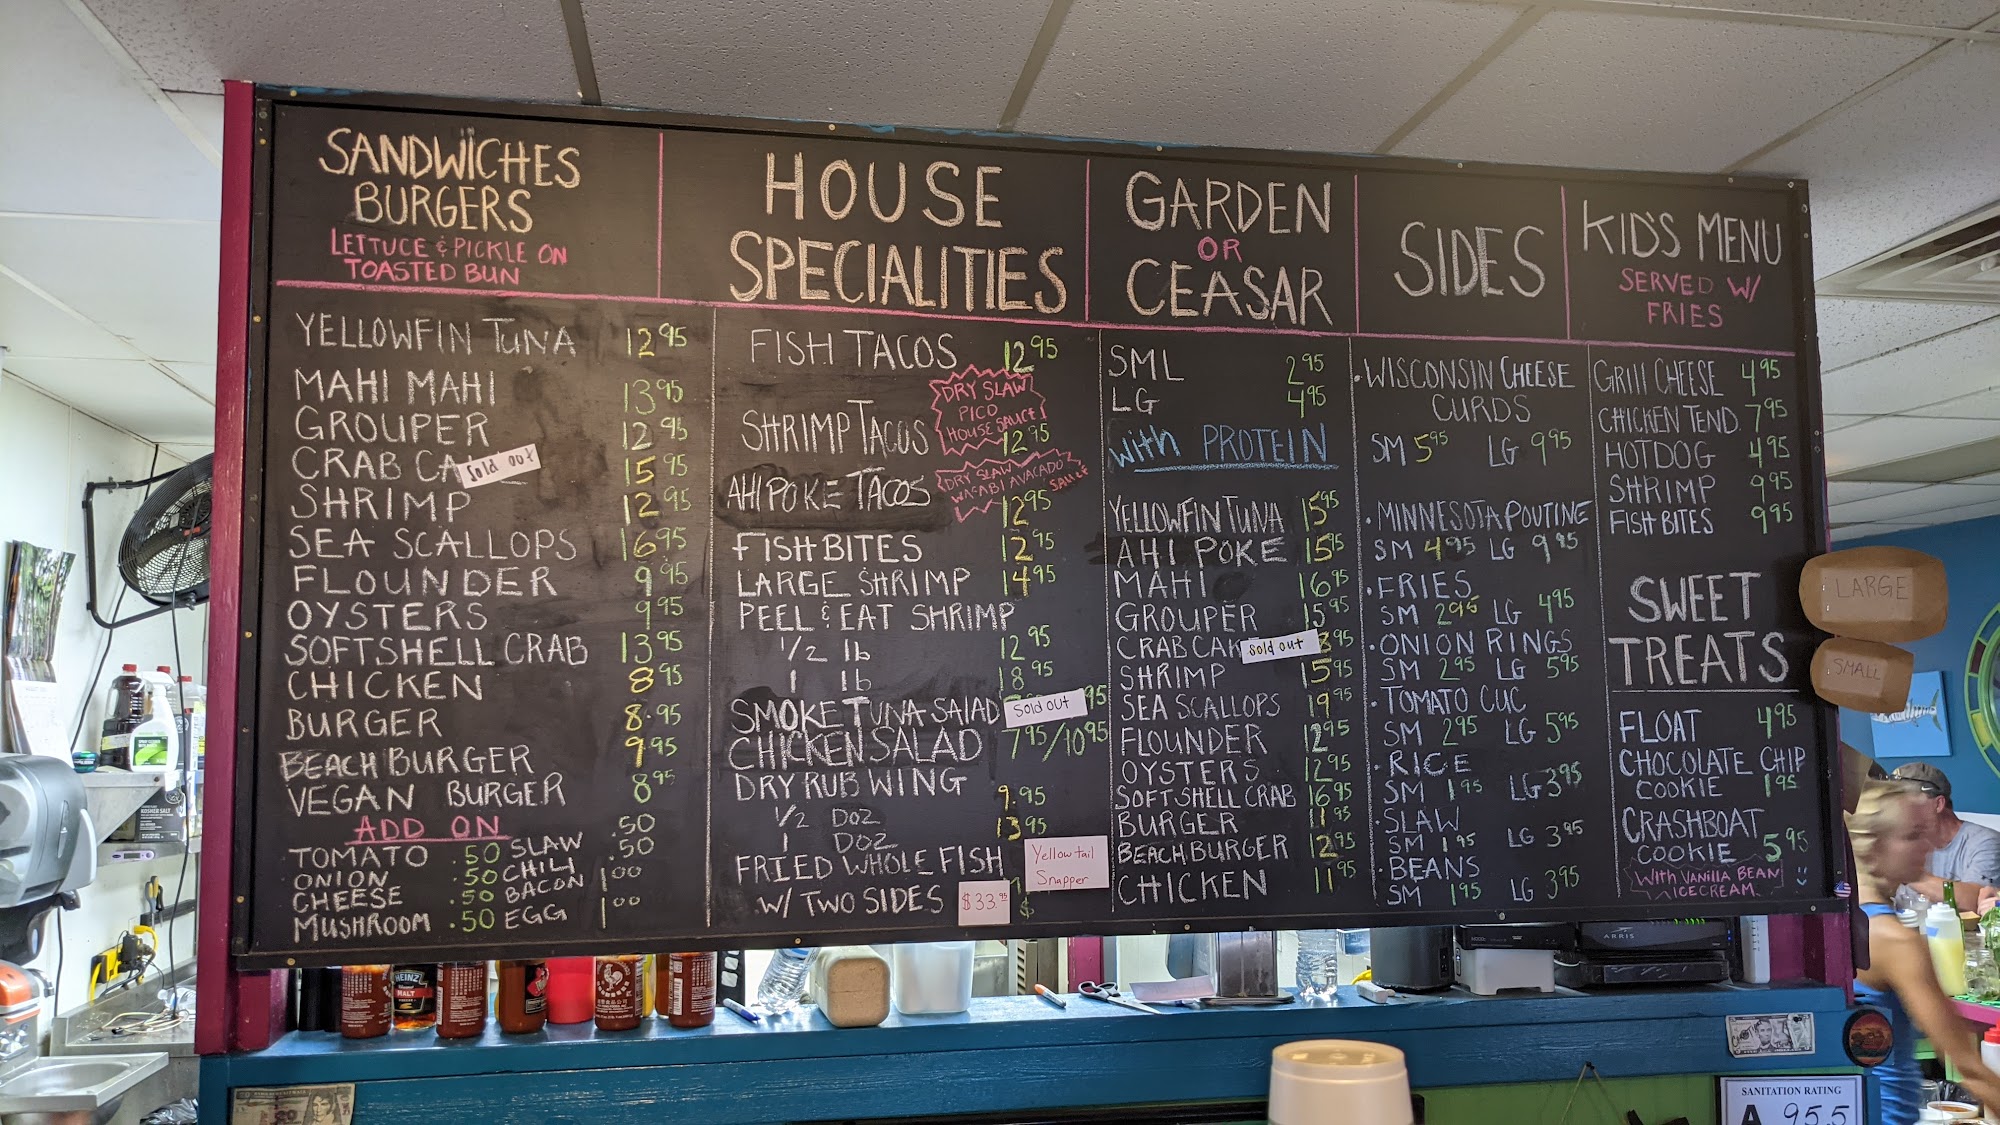 SANDWICHES
BURGERS
LETTUCE & PICKLE ON
TOASTED BUN
YELLOWFIN TUNA 12.95
MAHI MAHI 13.95
GROUPER 12.95
CRAB CA Sold out 15.95
SHRIMP 12.95
SEA SCALLOPS 16.95
FLOUNDER 9.95
OYSTERS 9.95
SOFTSHELL CRAB 13.95
CHICKEN 8.95
BURGER 8.95
BEACH BURGER 9.95
VEGAN BURGER 8.95
ADD ON
TOMATO .50 SLAW .50
ONION .50 CHILI .50
CHEESE .50 BACON 1.00
MUSHROOM .50 EGG 1.00
HOUSE
SPECIALITIES
FISH TACOS 12.95
DRY SLAW
PICO
HOUSE SAUCE
SHRIMP TACOS 12.95
DRY SLAW
WASABI AVACADO
SAUCE
AHI POKE TACOS 12.95
FISH BITES 12.95
LARGE SHRIMP 14.95
PEEL & EAT SHRIMP
1/2 lb 12.95
1 lb 18.95
SMOKE TUNA SALAD Sold out 95
CHICKEN SALAD 7.95/10.95
DRY RUB WING
1/2 DOZ 9.95
1 DOZ 13.95
FRIED WHOLE FISH Yellowtail Snapper
W/ TWO SIDES $33.95 $
GARDEN
OR
CEASAR
SML 2.95
LG 4.95
With PROTEIN
YELLOWFIN TUNA 15.95
AHI POKE 15.95
MAHI 16.95
GROUPER 15.95
CRAB CAK Sold out 95
SHRIMP 15.95
SEA SCALLOPS 19.95
FLOUNDER 12.95
OYSTERS 12.95
SOFTSHELL CRAB 16.95
BURGER 11.95
BEACH BURGER 12.95
CHICKEN 11.95
SIDES
• WISCONSIN CHEESE
CURDS
SM 5.95 LG 9.95
• MINNESOTA POUTINE
SM 4.95 LG 9.95
• FRIES
SM 2.95 LG 4.95
• ONION RINGS
SM 2.95 LG 5.95
• TOMATO CUC
SM 2.95 LG 5.95
• RICE
SM 1.95 LG 3.95
• SLAW
SM 1.95 LG 3.95
• BEANS
SM 1.95 LG 3.95
KID'S MENU
SERVED W/
FRIES
GRILL CHEESE 4.95
CHICKEN TEND. 7.95
HOTDOG 4.95
SHRIMP 9.95
FISH BITES 9.95
SWEET
TREATS
FLOAT 4.95
CHOCOLATE CHIP
COOKIE 1.95
CRASHBOAT
COOKIE 5.95
WITH VANILLA BEAN
ICECREAM
LARGE
SMALL
KOSHER SALT
HEINZ
MALT
ARRIS
SANITATION RATING
A 95.5